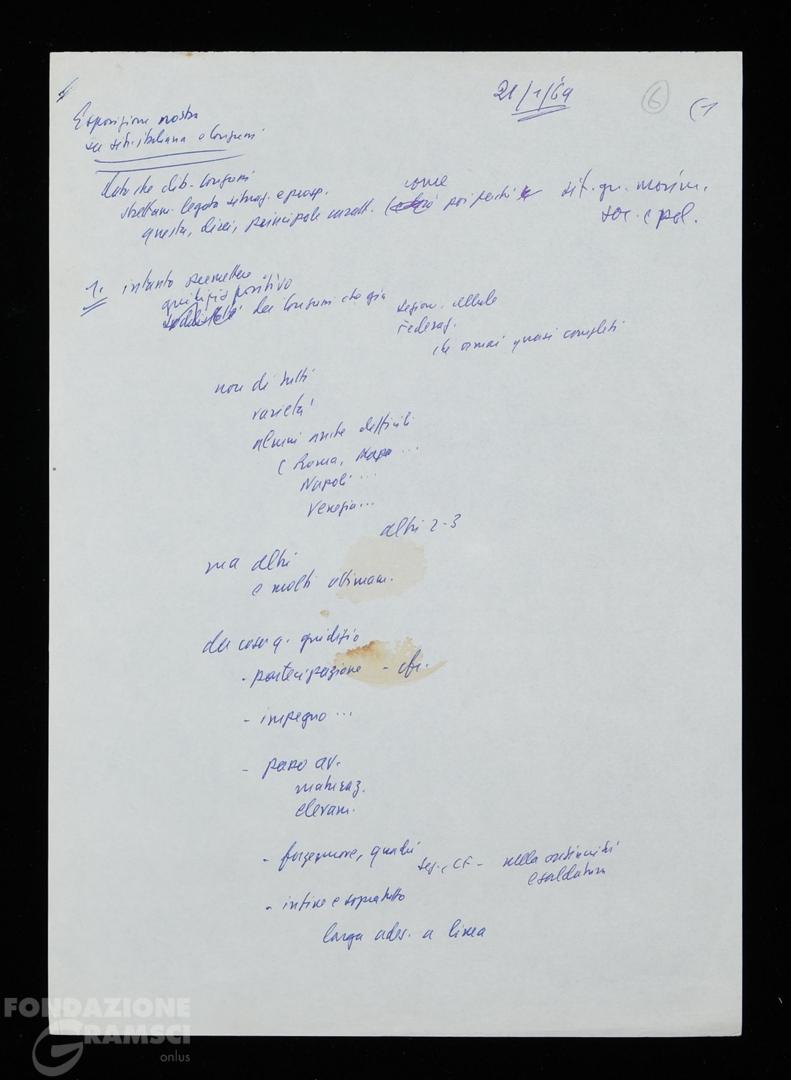 21/1/69
6
(1
Esposizione nostra
su sit. italiana e Congressi
dato che dib. Congressi
strettam. legato situaz. e prosp.
questa, direi, principale caratt. (come poi perché sit. gr. movim.
soc. e pol.
1. intanto
giudizio positivo
dei Congressi che già
sezion. cellule
Federaz.
che ormai quasi completi
non di tutti
varietà
alcuni anche difficili
( Roma, ...
Napoli ...
Venezia ...
altri 2-3
ma altri
e molti ottimam.
da cosa q. giudizio
- partecipazione - cfr.
- impegno ...
- passo av.
maturaz.
elevam.
- forze nuove, quadri
seg., CF - nella continuità
e saldatura
- infine e sopratutto
larga ades. a linea
FONDAZIONE
GRAMSCI
onlus